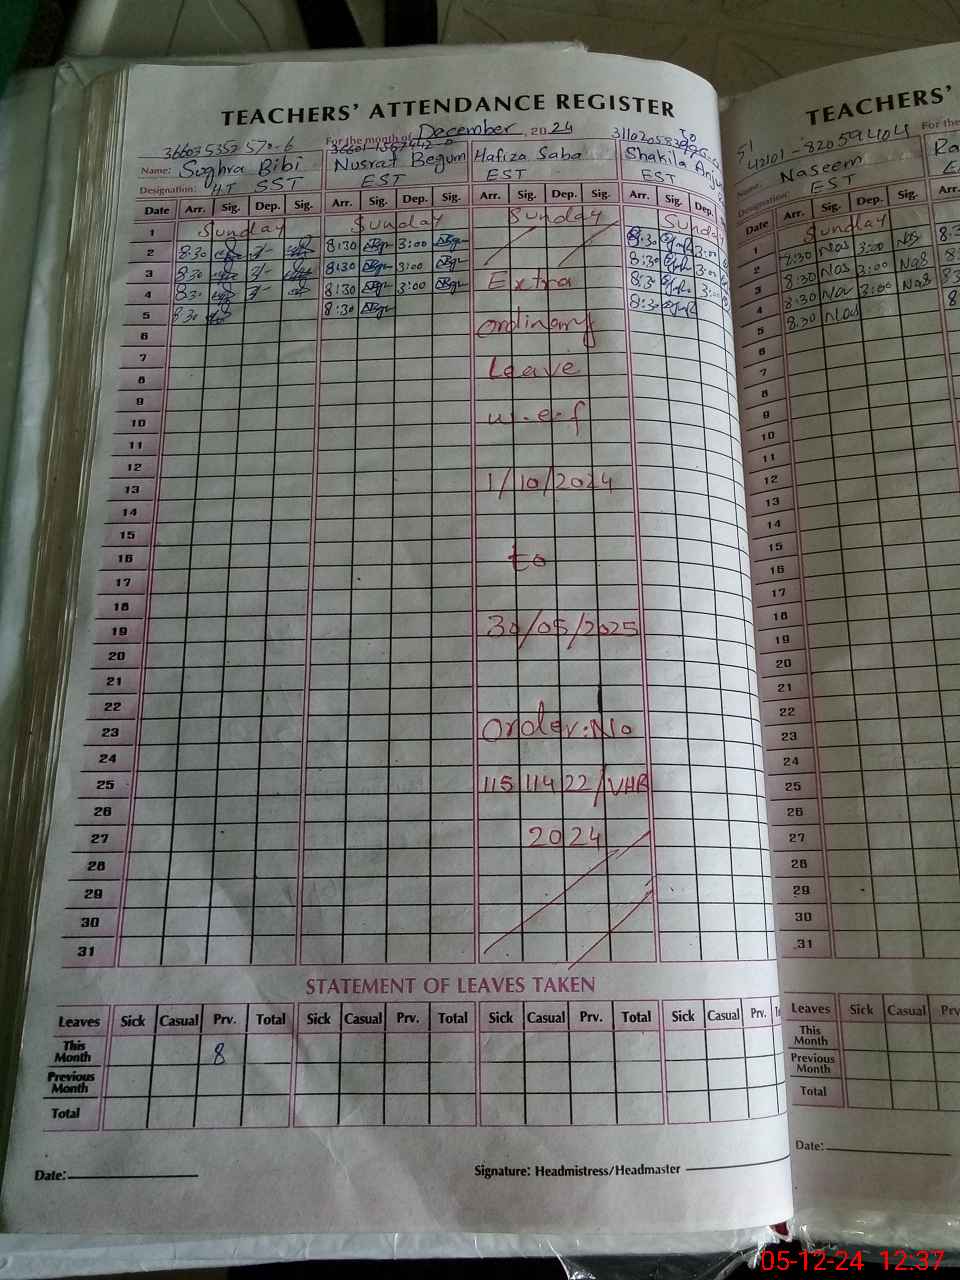 TEACHERS' ATTENDANCE REGISTER
For the month of December, 2024
Name: Sughra Bibi Nusrat Begum Hafiza Saba Shakila
Designation: HT SST EST EST EST
Date Arr. Sig. Dep. Sig. Arr. Sig. Dep. Sig. Arr. Sig. Dep. Sig. Arr. Sig. Dep.
1 Sunday Sunday Sunday Sunday
2 8:30 8:30 3:00 8:30 3:00
3 8:30 8:30 3:00 8:30 3:00
4 8:30 8:30 3:00 8:30 3:00
5 8:30 8:30 8:30
Extra
ordinary
Leave
w.e.f
1/10/2024
to
30/05/2025
Order:No
115 114 22/VHR
2024
6
7
8
9
10
11
12
13
14
15
16
17
18
19
20
21
22
23
24
25
26
27
28
29
30
31
STATEMENT OF LEAVES TAKEN
Leaves Sick Casual Prv. Total Sick Casual Prv. Total Sick Casual Prv. Total Sick Casual Prv.
This Month 8
Previous Month
Total
Date:
Signature: Headmistress/Headmaster
TEACHERS'
For the
42101-820594404
Name: Naseem
Designation: EST
Date Arr. Sig. Dep. Sig. Arr.
1 Sunday
2 8:30 Nas 3:00 Nas
3 8:30 Nas 3:00 Nas
4 8:30 Nas 3:00 Nas
5 8:30 Nas
6
7
8
9
10
11
12
13
14
15
16
17
18
19
20
21
22
23
24
25
26
27
28
29
30
31
Leaves Sick Casual
This Month
Previous Month
Total
Date:
05-12-24 12:37